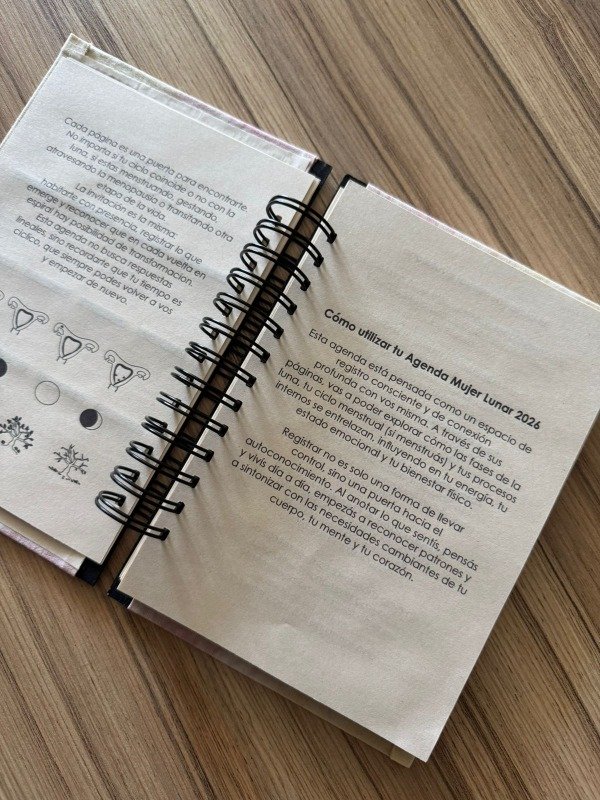 Cada página es una puerta para encontrarte.
No importa si tu ciclo coincide o no con la
luna, si estás menstruando, gestando,
atravesando la menopausia o transitando otra
etapa de la vida.
La invitación es la misma:
habitarte con presencia, registrar lo que
emerge y reconocer que en cada vuelta en
espiral hay posibilidad de transformación.
Esta agenda no busca respuestas
lineales, sino recordarte que tu tiempo es
cíclico, que siempre podes volver a vos
y empezar de nuevo.
Cómo utilizar tu Agenda Mujer Lunar 2026
Esta agenda está pensada como un espacio de
registro consciente y de conexión
profunda con vos misma. A través de sus
páginas, vas a poder explorar cómo las fases de la
luna, tu ciclo menstrual (si menstruás) y tus procesos
internos se entrelazan, influyendo en tu energía, tu
estado emocional y tu bienestar físico.
Registrar no es solo una forma de llevar
control, sino una puerta hacia el
autoconocimiento. Al anotar lo que sentís, pensás
y vivís día a día, empezás a reconocer patrones y
a sintonizar con las necesidades cambiantes de tu
cuerpo, tu mente y tu corazón.